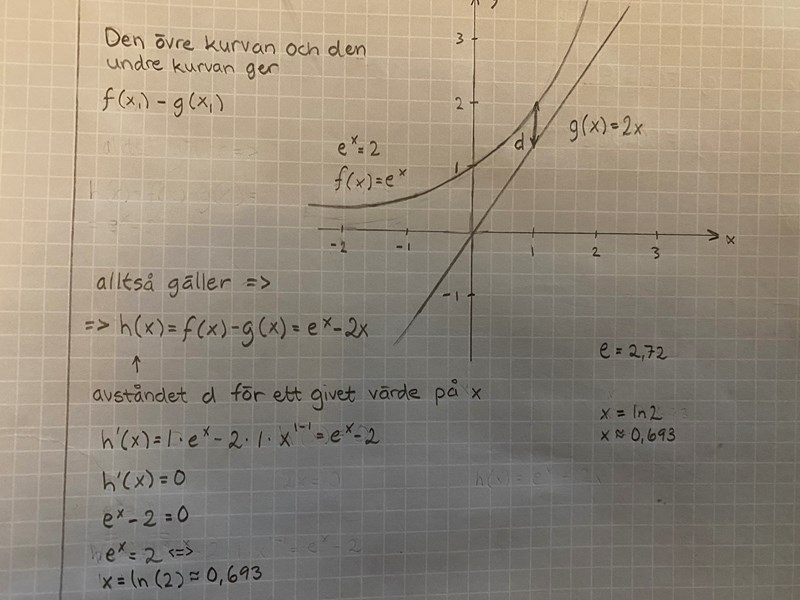 Den övre kurvan och den
undre kurvan ger
f(x₁) - g(x₁)
e^x = 2
f(x) = e^x
y
3
2
1
-1
-2 -1 1 2 3 x
d
g(x) = 2x
alltså gäller =>
=> h(x) = f(x) - g(x) = e^x - 2x
↑
avståndet d för ett givet värde på x
h'(x) = 1 · e^x - 2 · 1 · x^1-1 = e^x - 2
h'(x) = 0
e^x - 2 = 0
e^x = 2 <=>
x = ln(2) ≈ 0,693
e = 2,72
x = ln2
x ≈ 0,693